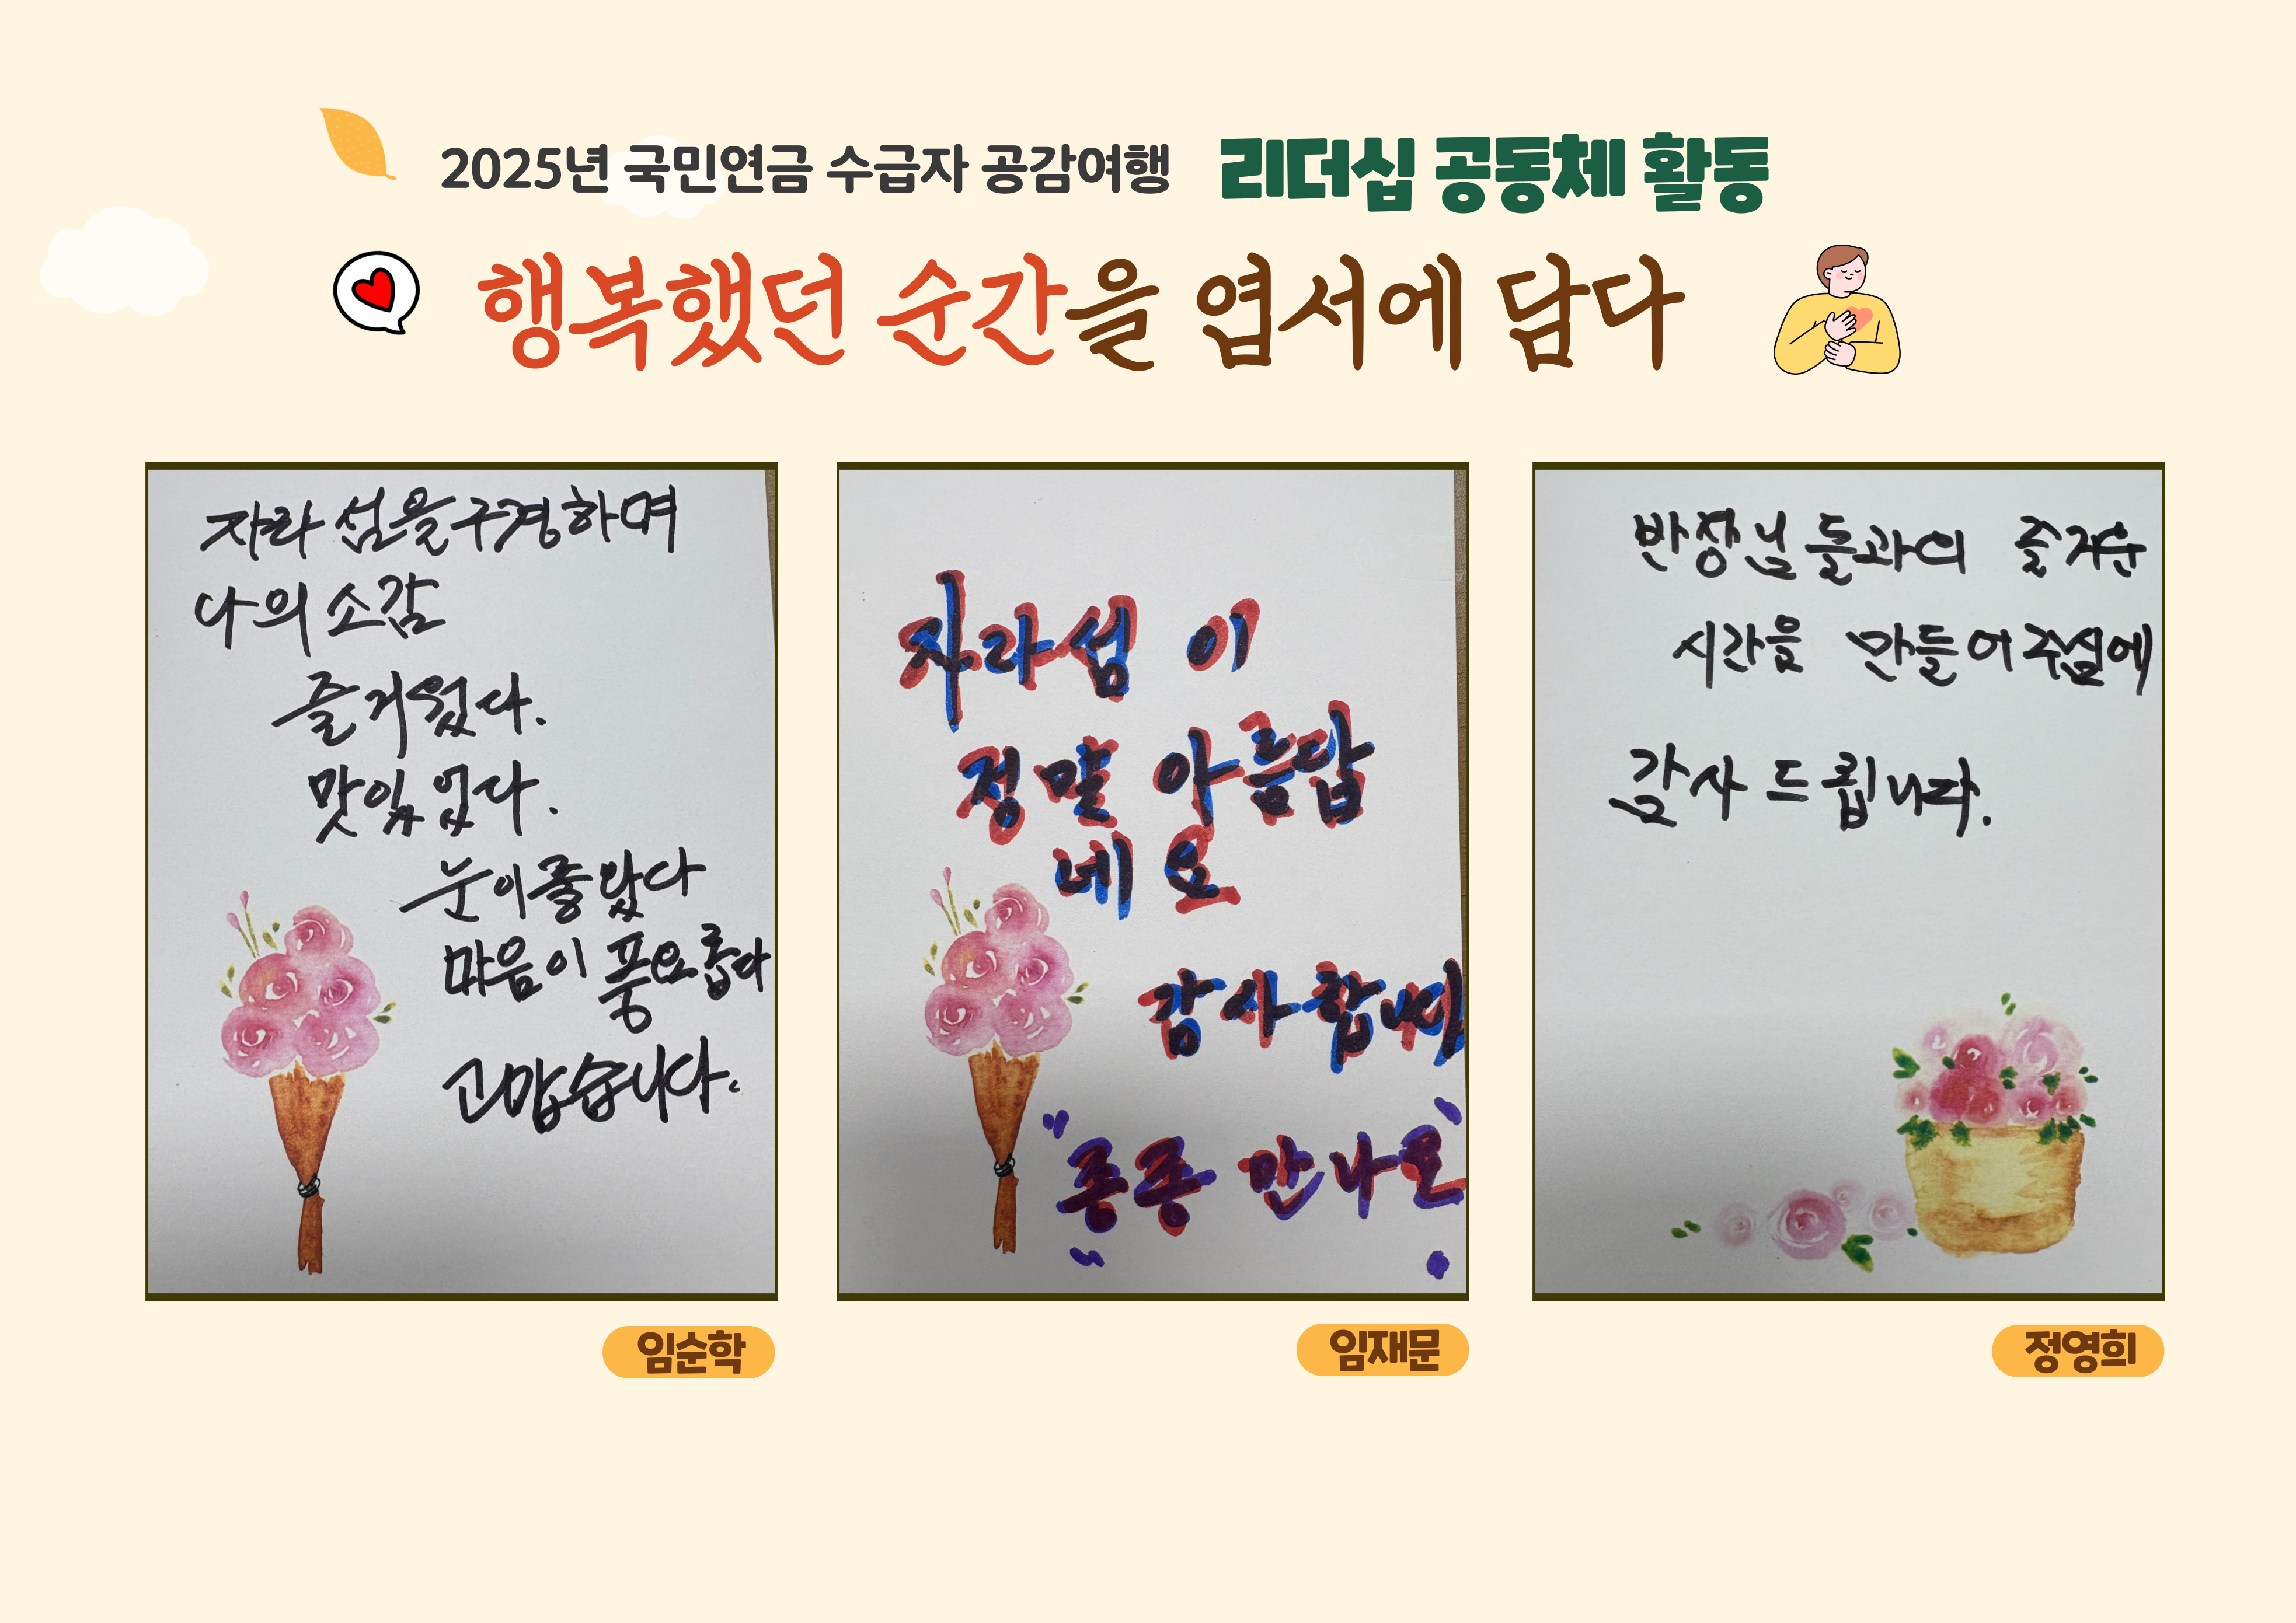 2025년 국민연금 수급자 공감여행 리더십 공동체 활동
행복했던 순간을 엽서에 담다
자라섬을 구경하며
나의 소감
즐거웠다.
맛있었다.
눈이 좋았다
마음이 풍요롭다
고맙습니다.
임순학
자라섬이
정말 아름답
네요
감사합니다
"종종 만나요
임재문
반장님들과의 즐거운
시간을 만들어 주심에
감사드립니다.
정영희